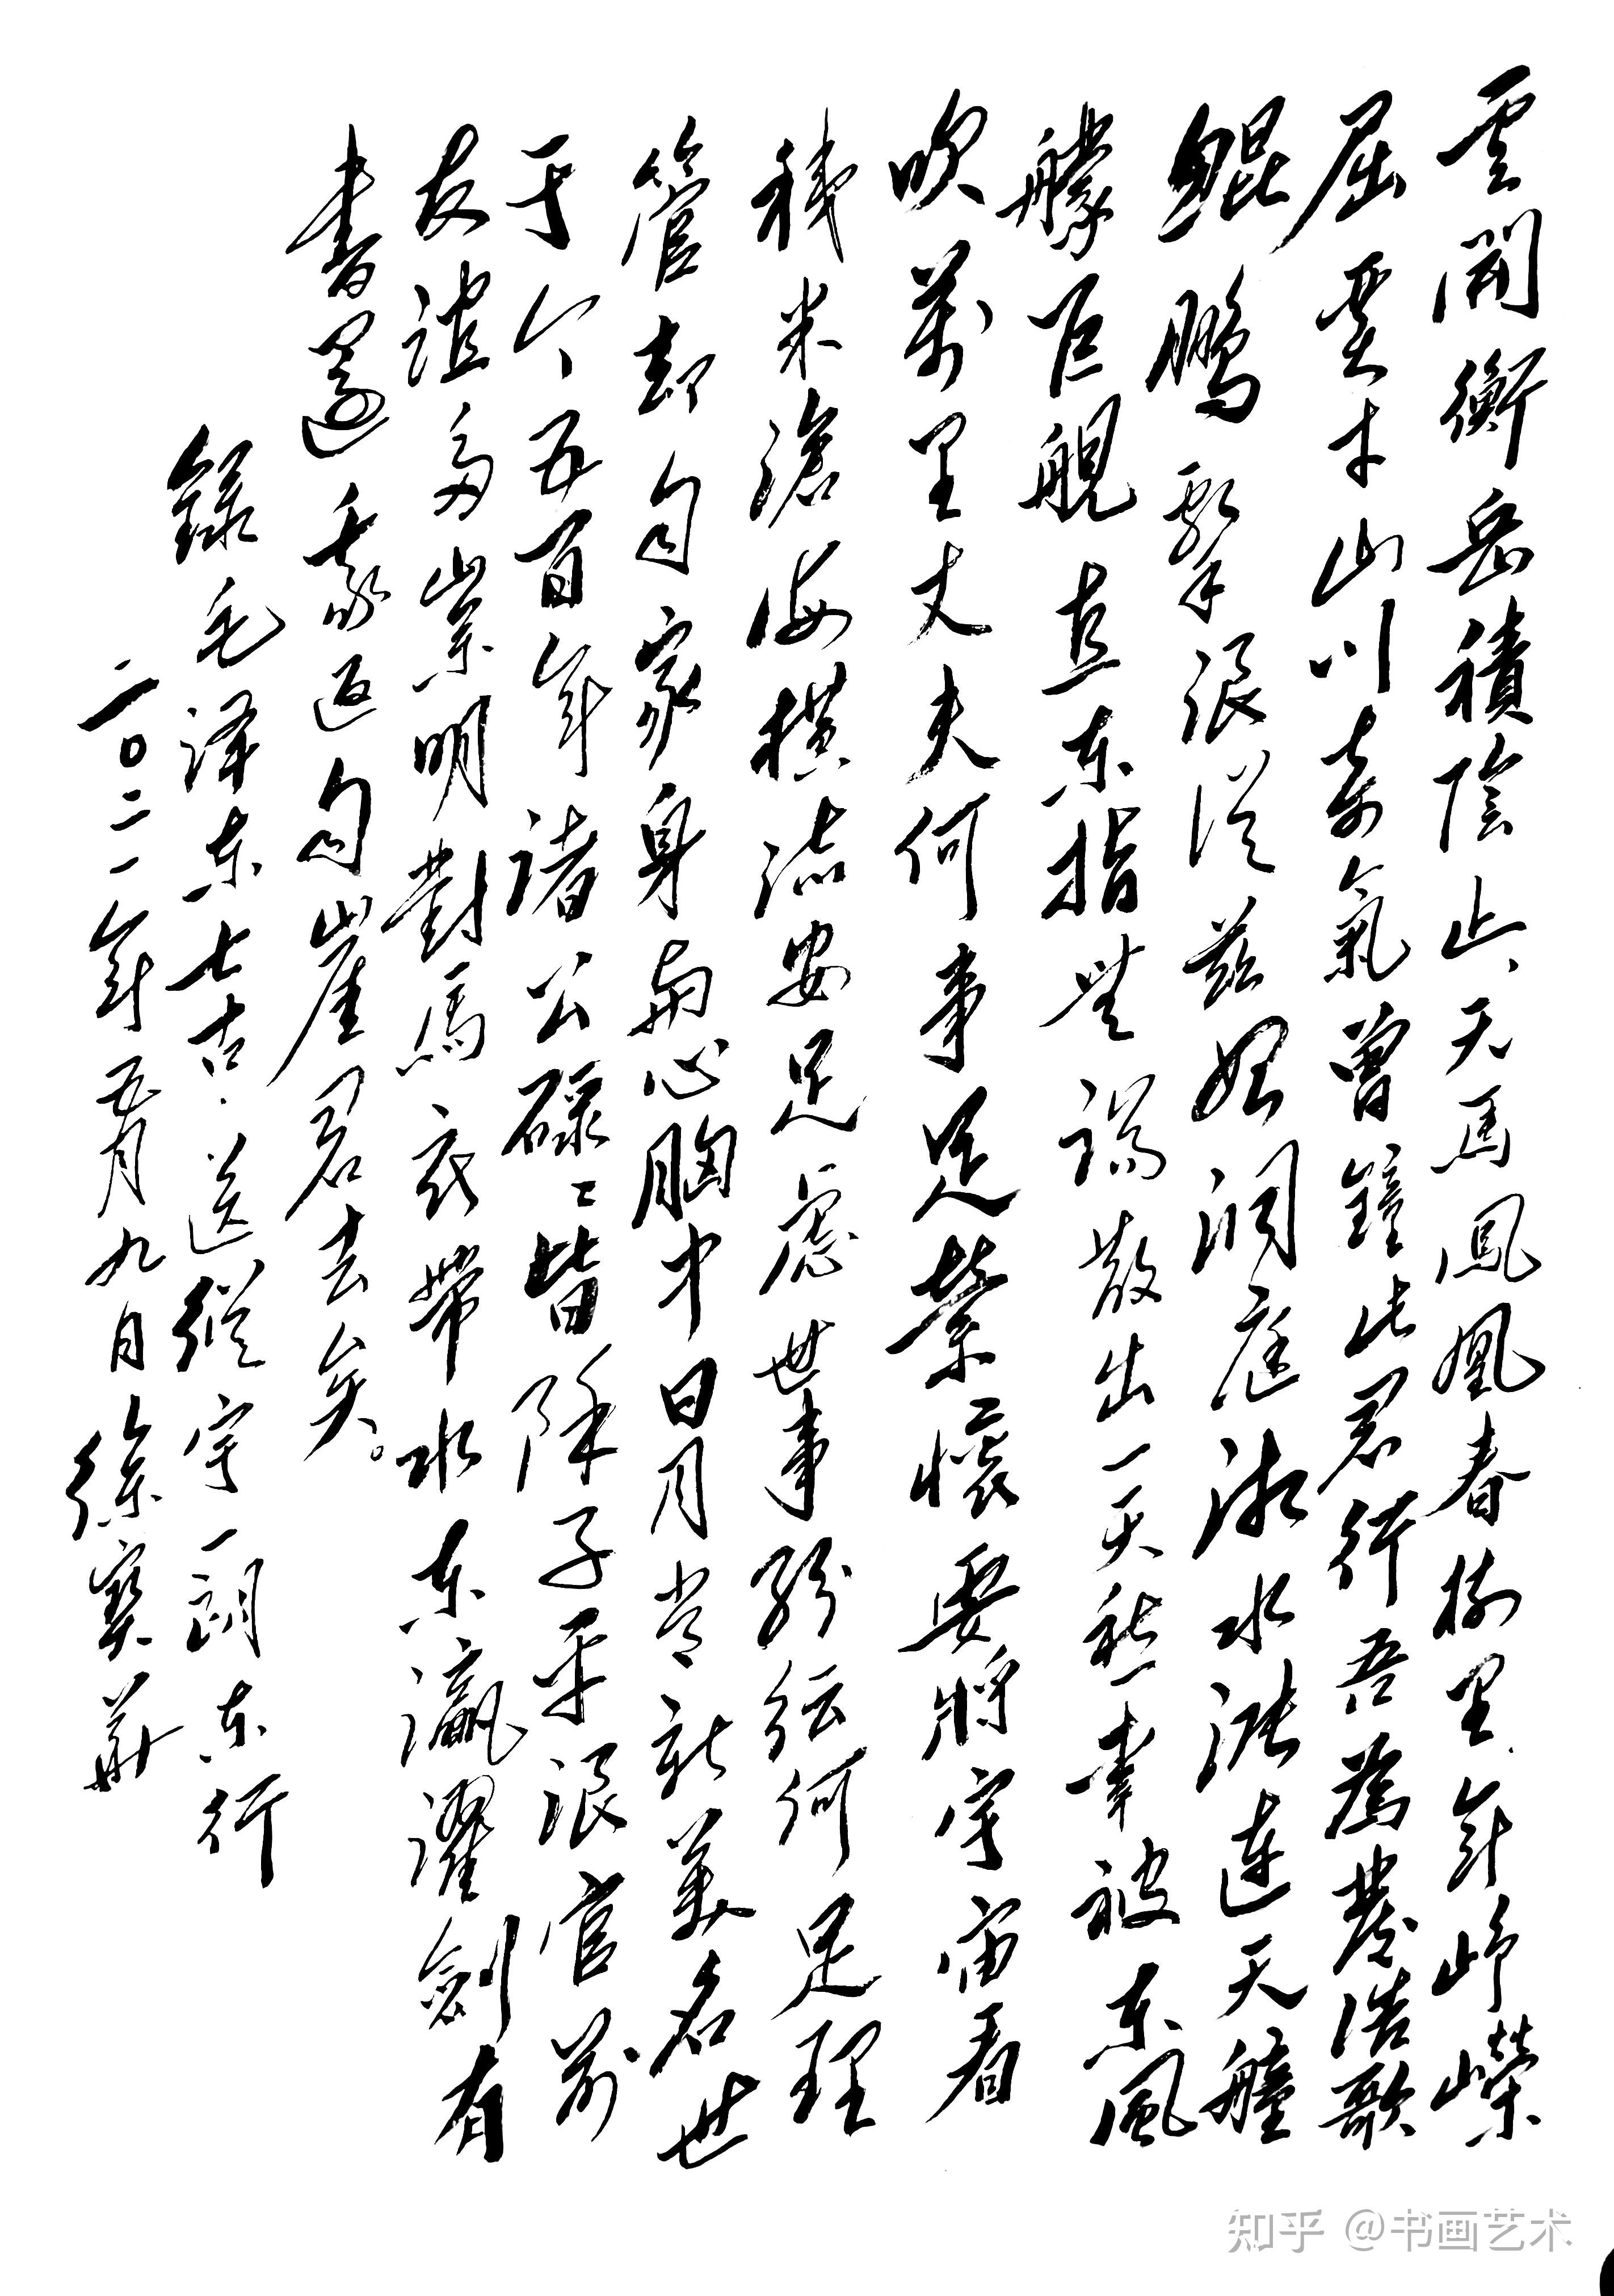 雲開衡岳積陰止、天馬鳳凰春樹里年崢嶸
屈賈才山川奇氣曾鐘此君行吾為發浩歌
鯤鵬擊浪從茲始洞庭湘水漲連天艟
艨巨艦直东指無端散出一天愁幸被东風
吹萬里丈夫何事足縈懷要將宇宙看
稊米滄海橫流安足慮世事紛紜何足理
管却自家身與心胸中日月常新美名世
于今五百年諸公碌々皆降子平浪宮前
友誼多崇明對馬衣帶水东瀛濯劍有
書還我返自崖君去矣。
錄毛泽东七古·送縱宇一朗东行
二〇二一年五月九日徐寶華
知乎 @书画艺术